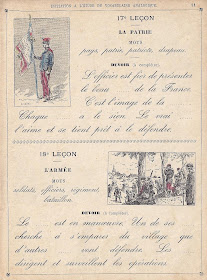 INITIATION A L'ÉTUDE DU VOCABULAIRE ANALOGIQUE. 11
17e LEÇON
LA PATRIE
MOTS
pays, patrie, patriote, drapeau.
DEVOIR (à compléter).
L'officier est fier de présenter
le beau de la France.
C'est l'image de la
Chaque a le sien. Le vrai
l'aime et se tient prêt à le défendre.
18e LEÇON
L'ARMÉE
MOTS
soldats, officiers, régiment,
bataillon.
DEVOIR (à compléter).
Le est en manœuvre. Un de ses
cherche à s'emparer du village que
d'autres vont défendre. Les
dirigent et surveillent les opérations.